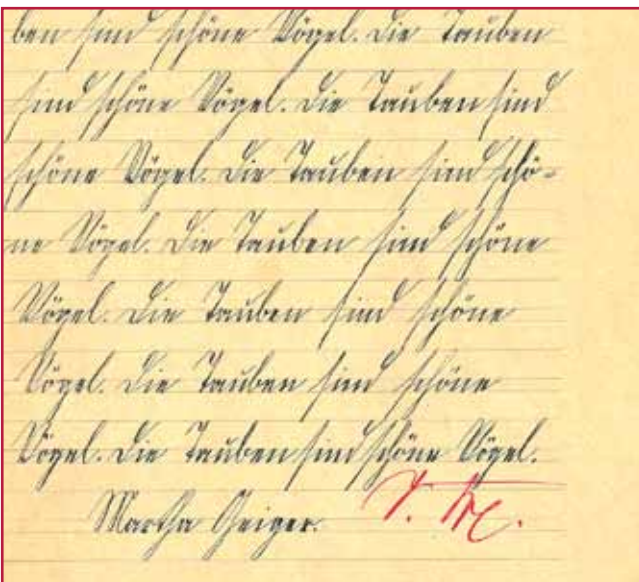 ben sind schöne Vögel. Die Tauben
sind schöne Vögel. Die Tauben sind
schöne Vögel. Die Tauben sind schö=
ne Vögel. Die Tauben sind schöne
Vögel. Die Tauben sind schöne
Vögel. Die Tauben sind schöne
Vögel. Die Tauben sind schöne Vögel.
Martha Geiger.